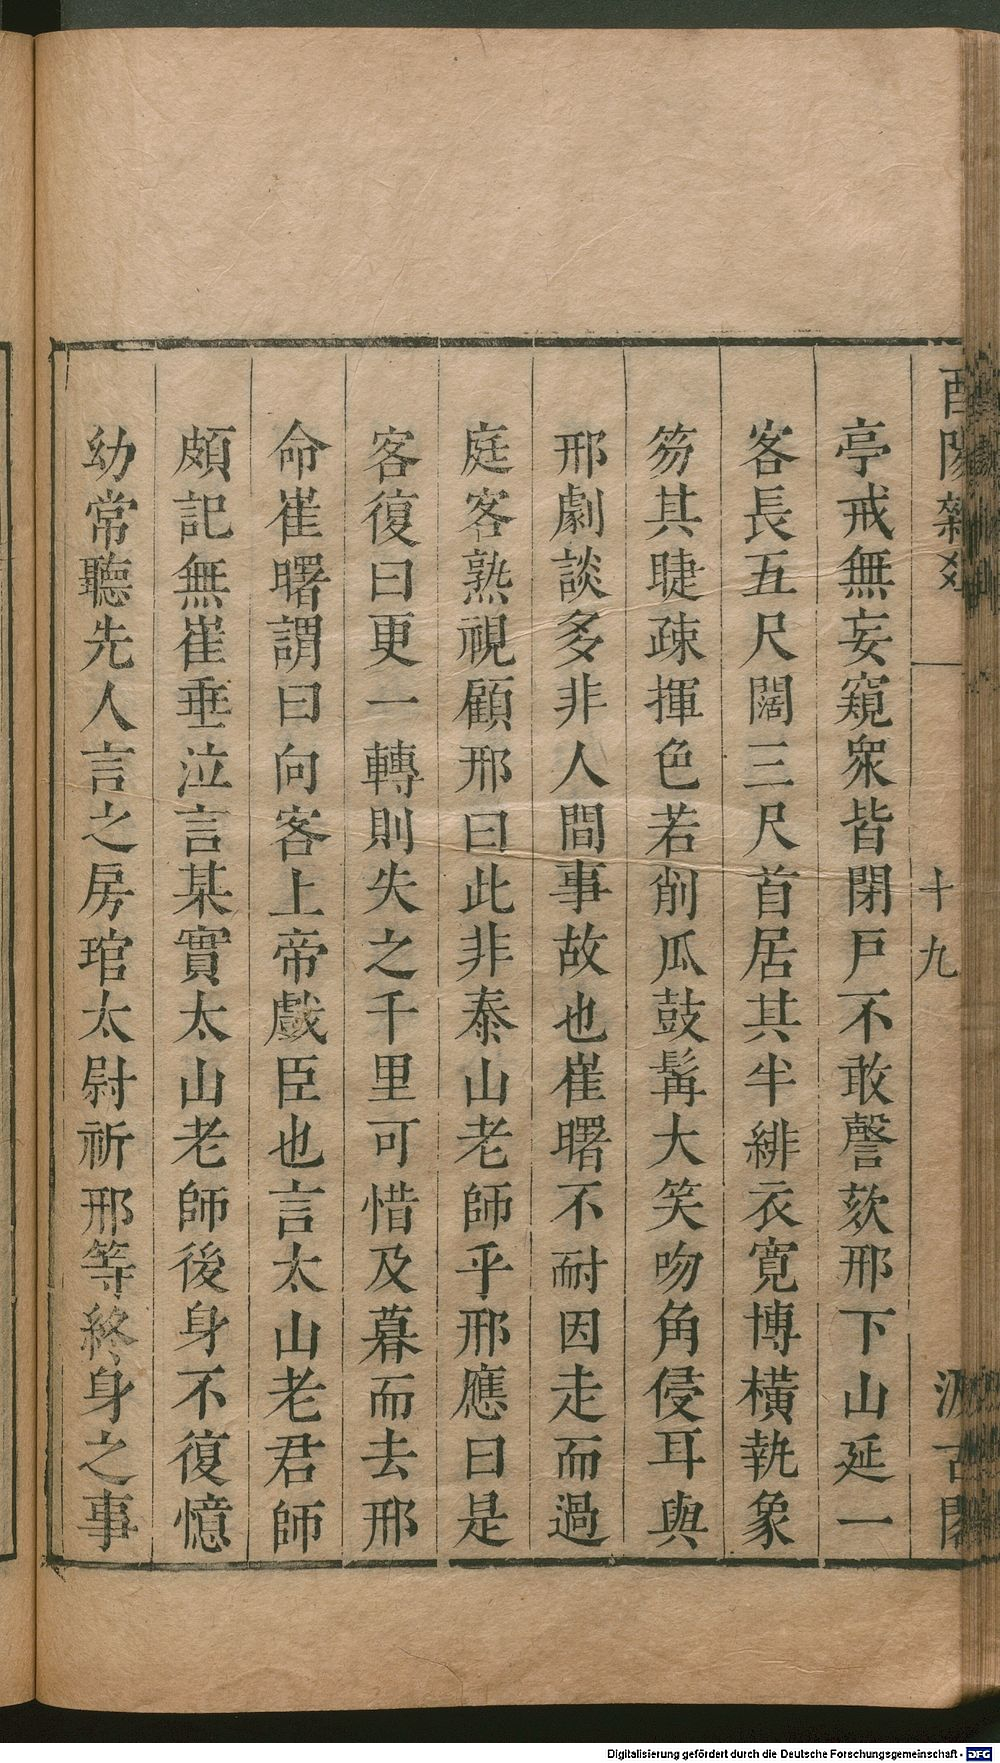 酉陽雜爼
十九
汲古閣
亭戒無妄窺衆皆閉戸不敢謦欬邢下山延一
客長五尺闊三尺首居其半緋衣寛博橫執象
笏其睫疎揮色若削瓜鼓髯大笑吻角侵耳與
邢劇談多非人間事故也崔曙不耐因走而過
庭客熟視顧邢曰此非泰山老師乎邢應曰是
客復曰更一轉則失之千里可惜及暮而去邢
命崔曙謂曰向客上帝戲臣也言太山老君師
頗記無崔垂泣言某實太山老師後身不復憶
幼常聽先人言之房琯太尉祈邢等終身之事
Digitalisierung gefördert durch die Deutsche Forschungsgemeinschaft - DFG